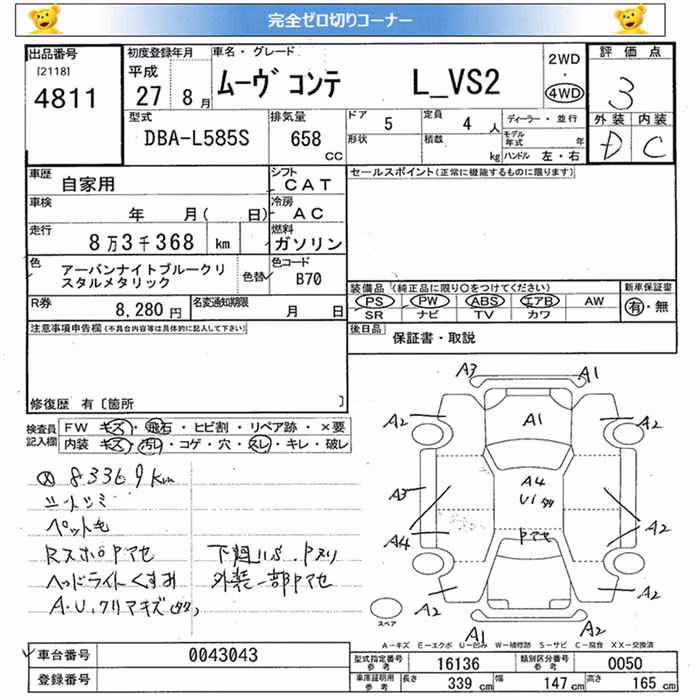 完全ゼロ切りコーナー
出品番号
[2118]
4811
初度登録年月
平成
27 8月
車名・グレード
ムーヴ コンテ L_VS2
2WD
・
4WD
評価点
3
外装 内装
D C
型式
DBA-L585S
排気量
658
CC
ドア
5
定員
4人
形状
積載
kg
ディーラー・並行
モデル年式 年
ハンドル 左・右
車歴
自家用
シフト
CAT
車検
年 月( 日)
冷房
AC
走行
8万3千368 km
燃料
ガソリン
色
アーバンナイトブルークリ
スタルメタリック
色替
色コード
B70
R券
8,280円
名変通知期限
月 日
セールスポイント(正常に機能するものに限ります)
装備品 (純正品に限り○をつけてください)
PS PW ABS エアB AW
SR ナビ TV カワ
新車保証書
有・無
後日品
保証書・取説
注意事項申告欄(不具合内容等は具体的に記入して下さい)
修復歴 有〔箇所 〕
検査員
記入欄
FW キズ・飛石・ヒビ割・リペア跡・×要
内装 キズ・汚レ・コゲ・穴・スレ・キレ・破レ
83369km
シートシミ
ペット毛
RスポPアセ 下廻りS.Pヌリ
ヘッドライトくすみ 外装一部Pアセ
A・U.クリアキズ
A3 A1
A2 A1 A2
A3 A4
U1
A4 A2
Pアセ
A2 A2
A1 A2
スペア
A-キズ E-エクボ U-凹み W-補修跡 S-サビ C-腐食 XX-交換済
車台番号
0043043
登録番号
型式指定番号
参考
16136
類別区分番号
参考
0050
車庫証明用
参考
長さ 339 cm
幅 147 cm
高さ 165 cm